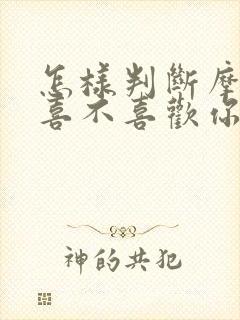 怎樣判斷摩
喜不喜歡你
神的共犯